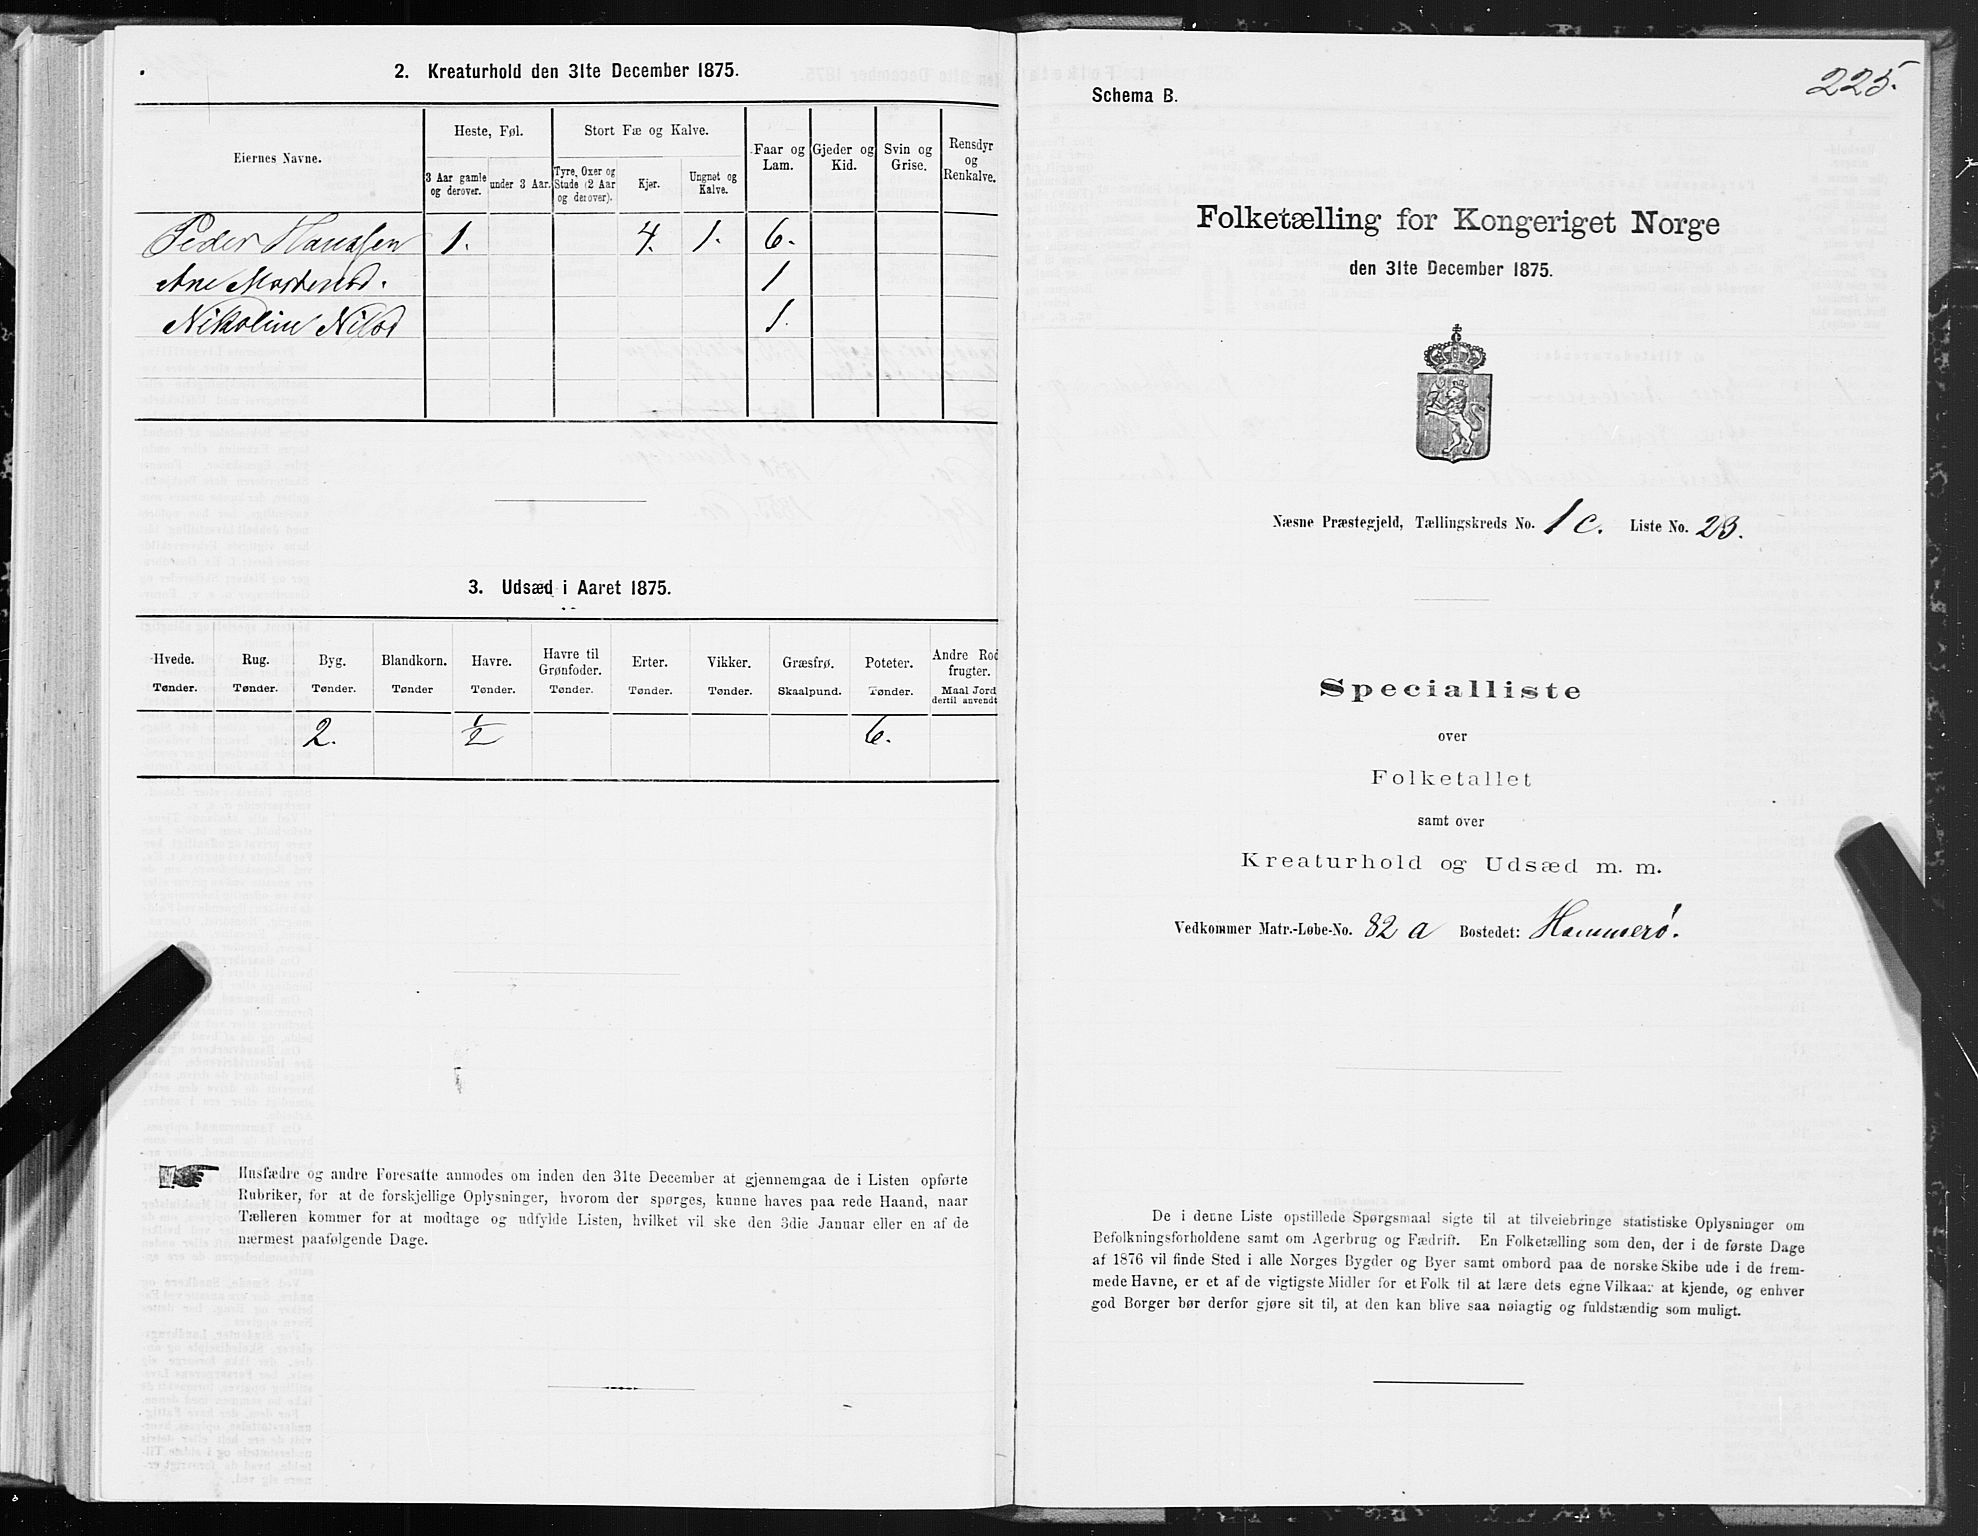 2. Kreaturhold den 31te December 1875.
Eiernes Navne.
Heste, Føl.
Stort Fæ og Kalve.
Faar og Lam.
Gjeder og Kid.
Svin og Grise.
Rensdyr og Renkalve.
3 Aar gamle og derover.
under 3 Aar.
Tyre, Oxer og Stude (2 Aar og derover).
Kjør.
Ungnøt og Kalve.
Peder Hanssen 1. 4. 1. 6.
Ane Mortensd. 1
Nikoline Nilsd 1.
3. Udsæd i Aaret 1875.
Hvede. Rug. Byg. Blandkorn. Havre. Havre til Grønfoder. Erter. Vikker. Græsfrø. Poteter. Andre Rod frugter.
Tønder. Tønder. Tønder. Tønder Tønder. Tønder. Tønder. Tønder. Skaalpund. Tønder. Maal Jord dertil anvendt.
2. 1/2 6.
Husfædre og andre Foresatte anmodes om inden den 31te December at gjennemgaa de i Listen opførte
Rubriker, for at de forskjellige Oplysninger, hvorom der spørges, kunne haves paa rede Haand, naar
Tælleren kommer for at modtage og udfylde Listen, hvilket vil ske den 3die Januar eller en af de
nærmest paafølgende Dage.
225.
Schema B.
Folketælling for Kongeriget Norge
den 31te December 1875.
Næsne Præstegjeld, Tællingskreds No. 1 c. Liste No. 23.
Specialliste
over
Folketallet
samt over
Kreaturhold og Udsæd m. m.
Vedkommer Matr.-Løbe-No. 82 a Bostedet: Hammerø.
De i denne Liste opstillede Spørgsmaal sigte til at tilveiebringe statistiske Oplysninger om
Befolkningsforholdene samt om Agerbrug og Fædrift. En Folketælling som den, der i de første Dage
af 1876 vil finde Sted i alle Norges Bygder og Byer samt ombord paa de norske Skibe ude i de frem-
mede Havne, er et af de vigtigste Midler for et Folk til at lære dets egne Vilkaar at kjende, og enhver
god Borger bør derfor gjøre sit til, at den kan blive saa nøiagtig og fuldstændig som muligt.